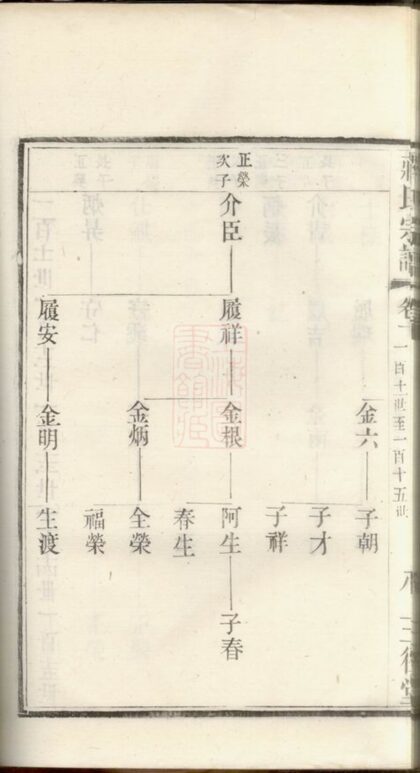 氏宗譜
卷
一百十一世至一百十五世
三
堂
金六
子朝
子才
子祥
正榮
次子
介臣
履祥
金根
阿生
子春
春生
金炳
全榮
福榮
履安
金明
生渡